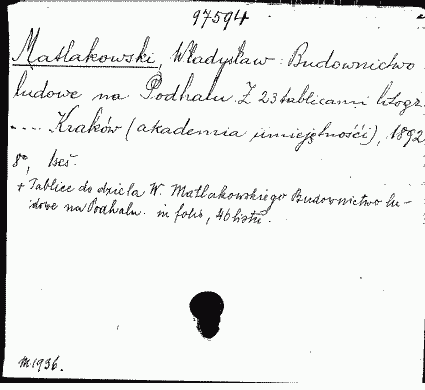 97594
Matlakowski, Władysław: Budownictwo
ludowe na Podhalu. Z 23 tablicami litogr.
.... Kraków (akademia umiejętności), 1892,
8°,
+ Tablice do dzieła W. Matlakowskiego Budownictwo lu-
dowe na Podhalu. in folio, 46 listů.
M1936.